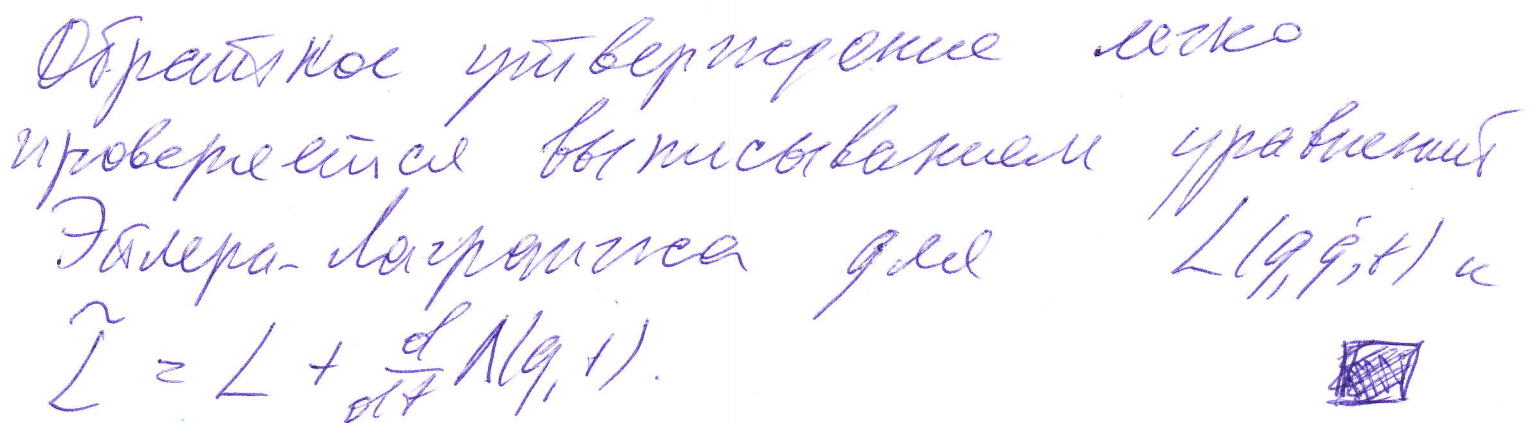 Обратное утверждение легко
проверяется выписыванием уравнений
Эйлера-Лагранжа для L(q, q̇, t) и
L̃ = L + d/dt Λ(q, t).